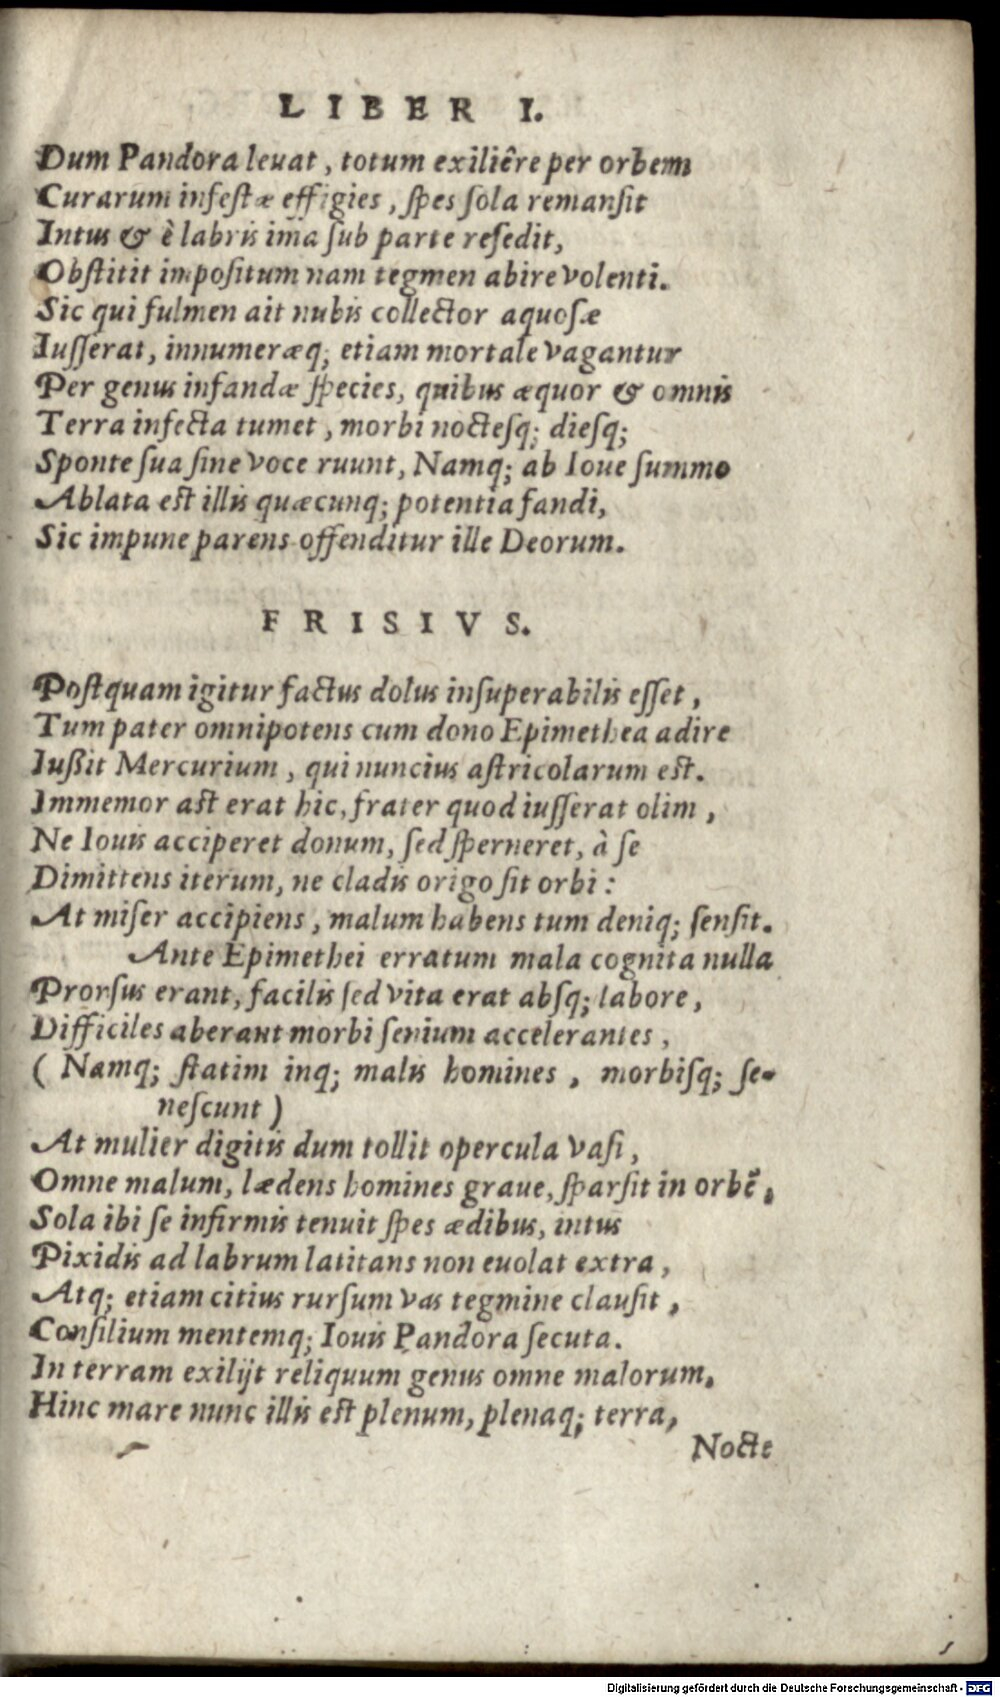 LIBER I.
Dum Pandora leuat, totum exiliêre per orbem
Curarum infestæ effigies, spes sola remansit
Intus & è labris ima sub parte resedit,
Obstitit impositum nam tegmen abire volenti.
Sic qui fulmen ait nubis collector aquosæ
Iusserat, innumeræq; etiam mortale vagantur
Per genus infandæ species, quibus æquor & omnis
Terra infecta tumet, morbi noctesq; diesq;
Sponte sua sine voce ruunt, Namq; ab Ioue summo
Ablata est illis quæcunq; potentia fandi,
Sic impune parens offenditur ille Deorum.
FRISIVS.
Postquam igitur factus dolus insuperabilis esset,
Tum pater omnipotens cum dono Epimethea adire
Iußit Mercurium, qui nuncius astricolarum est.
Immemor ast erat hic, frater quod iusserat olim,
Ne Iouis acciperet donum, sed sperneret, à se
Dimittens iterum, ne cladis origo sit orbi:
At miser accipiens, malum habens tum deniq; sensit.
Ante Epimethei erratum mala cognita nulla
Prorsus erant, facilis sed vita erat absq; labore,
Difficiles aberant morbi senium accelerantes,
( Namq; statim inq; malis homines, morbisq; se-
nescunt )
At mulier digitis dum tollit opercula vasi,
Omne malum, lædens homines graue, sparsit in orbẽ,
Sola ibi se infirmis tenuit spes ædibus, intus
Pixidis ad labrum latitans non euolat extra,
Atq; etiam citius rursum vas tegmine clausit,
Consilium mentemq; Iouis Pandora secuta.
In terram exilijt reliquum genus omne malorum.
Hinc mare nunc illis est plenum, plenaq; terra,
Nocte
Digitalisierung gefördert durch die Deutsche Forschungsgemeinschaft - DFG